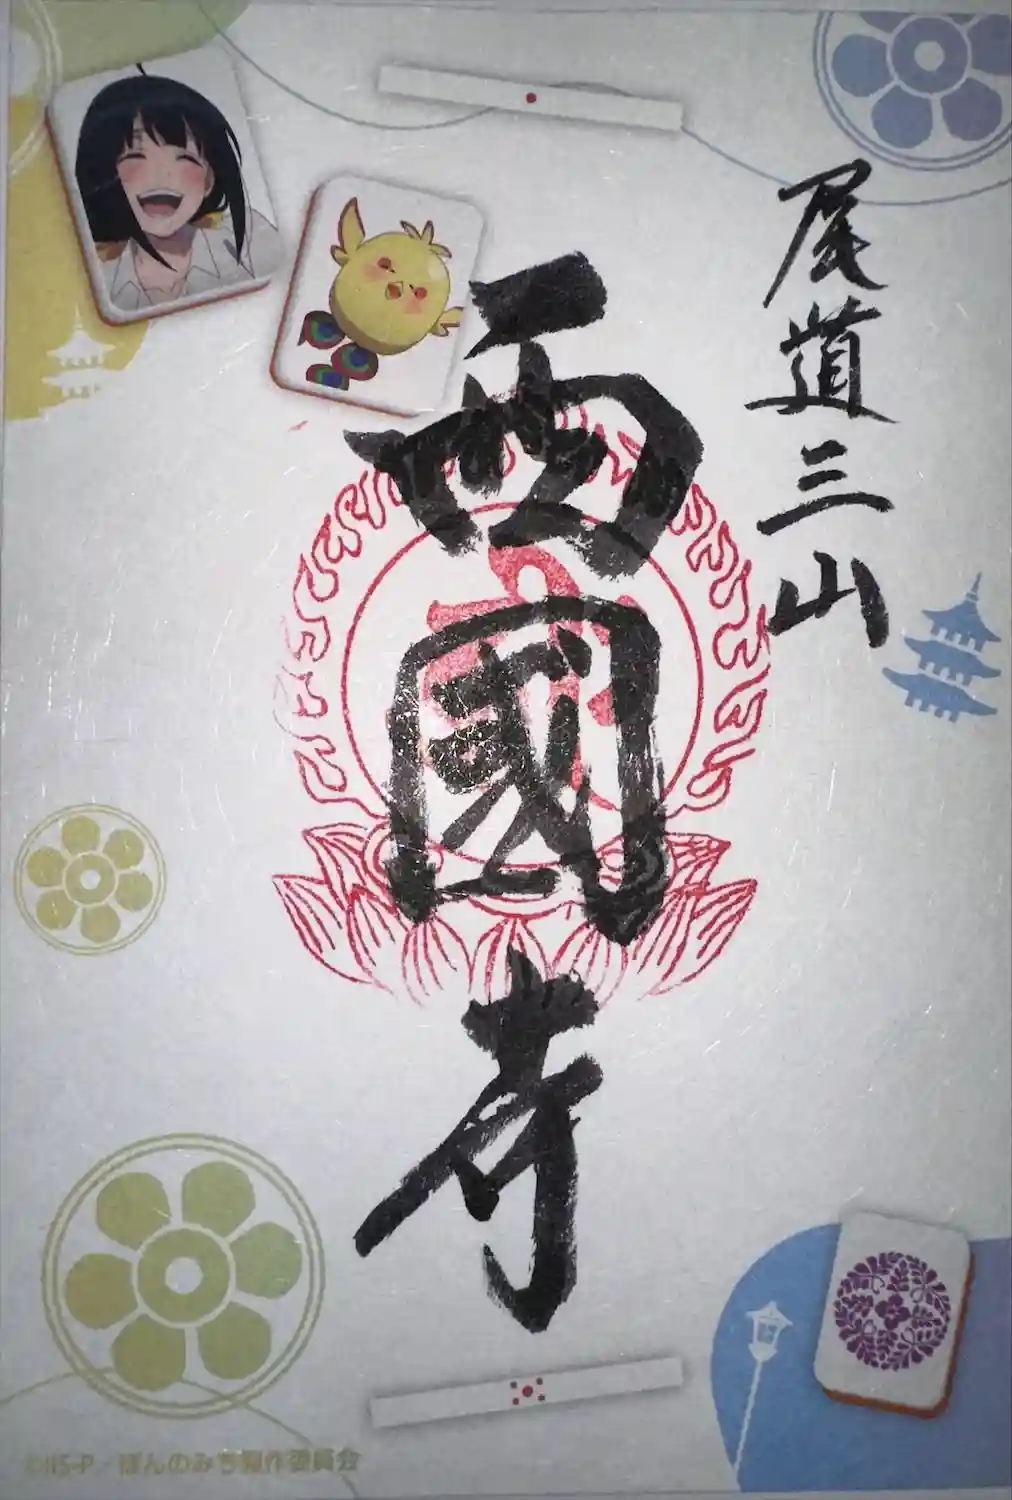 尾道三山
西國寺
©IIS-P・ぽんのみち製作委員会